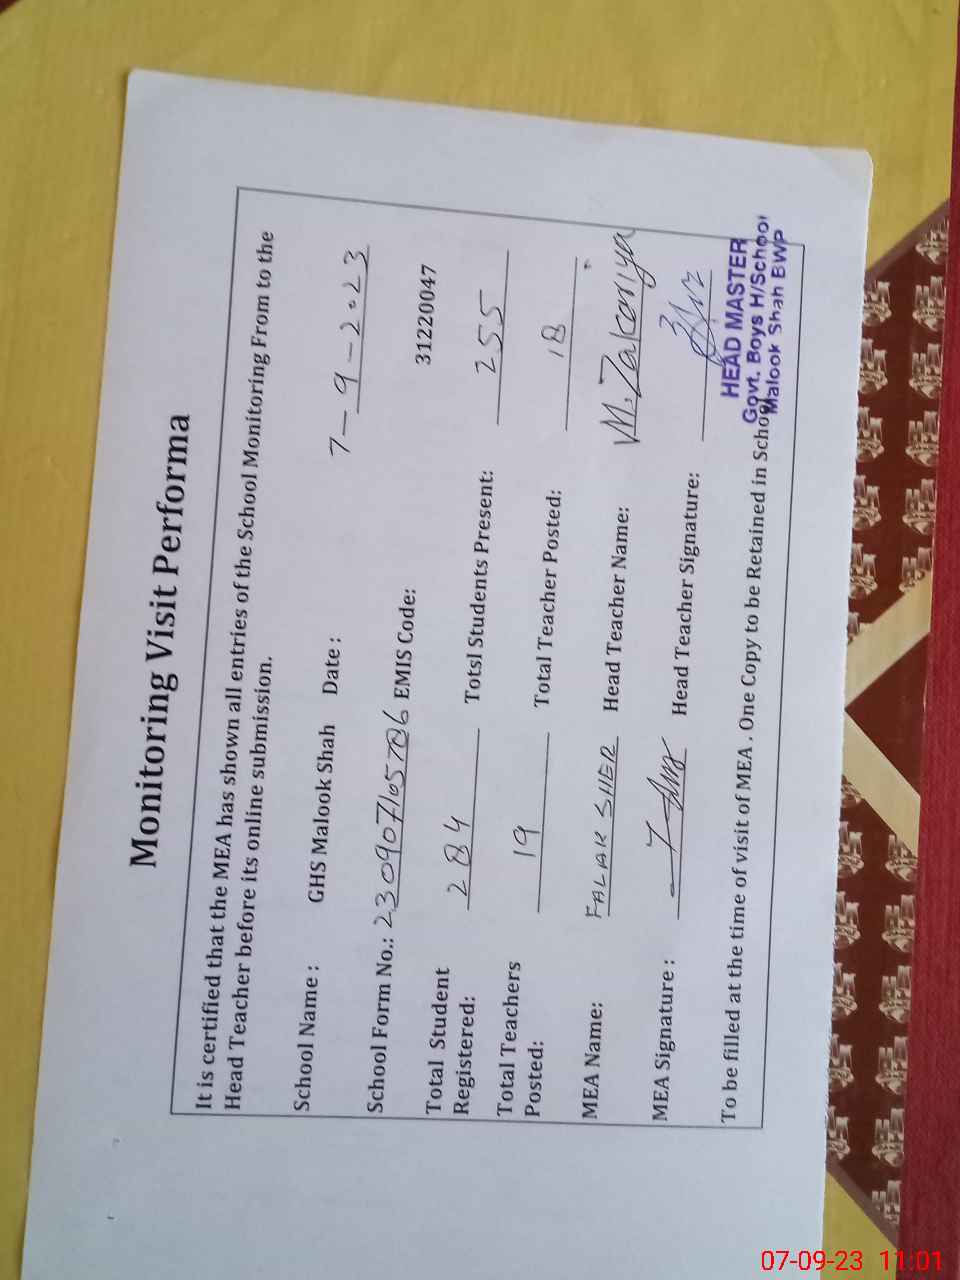 Monitoring Visit Performa
It is certified that the MEA has shown all entries of the School Monitoring From to the
Head Teacher before its online submission.
School Name : GHS Malook Shah Date : 7-9-2023
School Form No.: EMIS Code: 31220047
Total Student Registered: 284 Totsl Students Present: 255
Total Teachers Posted: 19 Total Teacher Posted: 18
MEA Name: FALAK SHER Head Teacher Name: M. Zakariya
MEA Signature : Head Teacher Signature:
HEAD MASTER
Govt. Boys H/School
Malook Shah BWP
To be filled at the time of visit of MEA . One Copy to be Retained in School
07-09-23 11:01